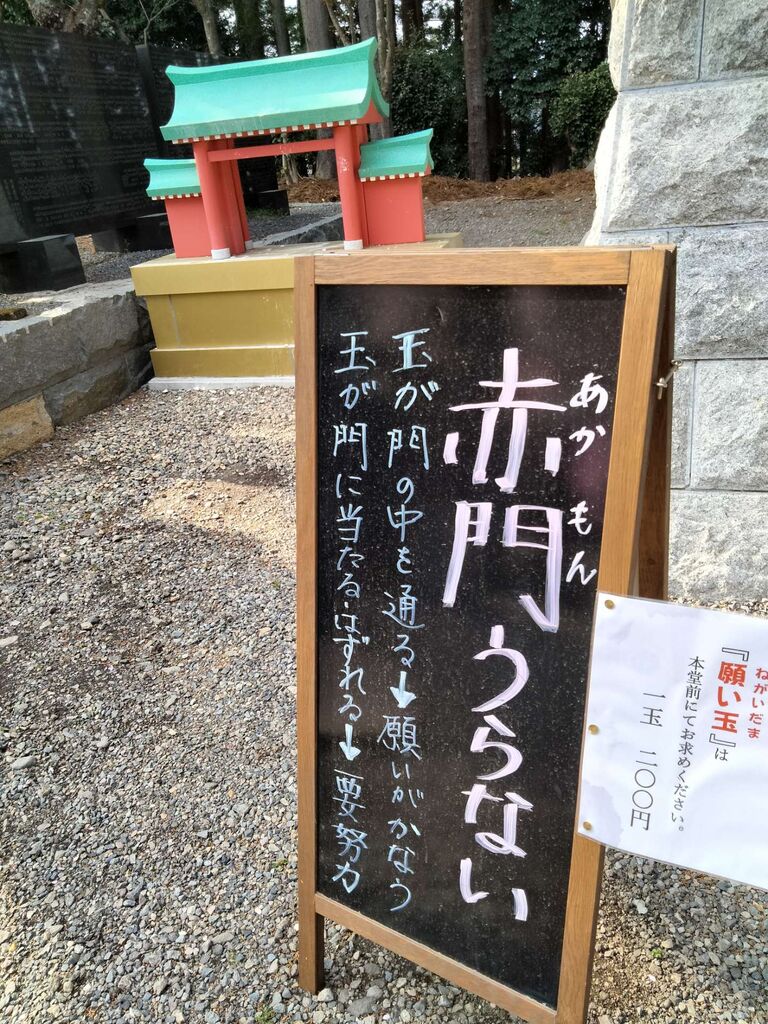 赤門うらない
あかもん
玉が門の中を通る↓願いがかなう
玉が門に当たる・はずれる↓要努力
ねがいだま
『願い玉』は
本堂前にてお求めください。
一玉 二〇〇円